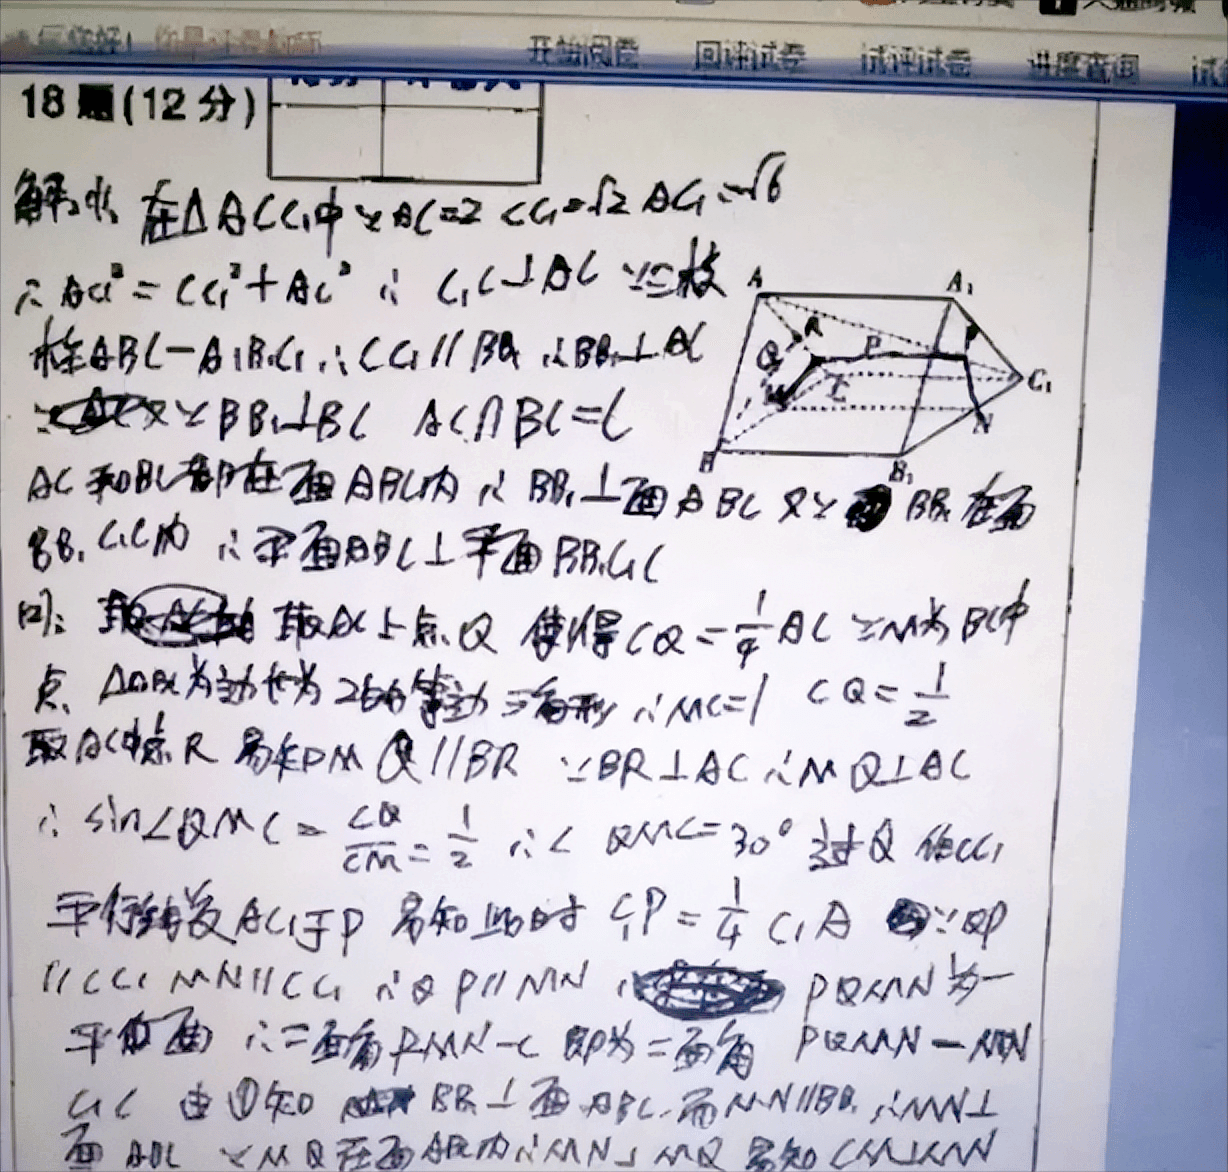 开始阅卷 回评试卷 试评试卷 进度查询
18题(12分)
解: 在△ACC₁中∵AC=2 CC₁=√2 AC₁=√6
∴AC₁²=CC₁²+AC² ∴C₁C⊥AC ∵三棱
柱ABC-A₁B₁C₁∴CC₁//BB₁∴BB₁⊥AC
又∵BB₁⊥BC AC∩BC=C
AC和BC都在面ABC内∴BB₁⊥面ABC 又∵BB₁在面
BB₁C₁C内∴平面ABC⊥平面BB₁C₁C
取AC上点Q 使得CQ=1/4AC ∵M为BC中
点, △ABC为边长为2的等边三角形∴MC=1 CQ=1/2
取AC中点R 易知MQ//BR ∵BR⊥AC∴MQ⊥AC
∴sin∠QMC=CQ/CM=1/2 ∴∠QMC=30° 过Q作CC₁
平行线交AC₁于P 易知此时C₁P=1/4C₁A ∵QP
//CC₁ MN//CC₁ ∴QP//MN PQMN为一
平面 ∴二面角PMN-C 即为二面角 PQMN-MN
C₁C 由①知 BB₁⊥面ABC 而MN//BB₁∴MN⊥
面ABC ∵MQ在面ABC内∴MN⊥MQ 易知CM⊥MN
A A₁ R Q P C C₁ M N B B₁